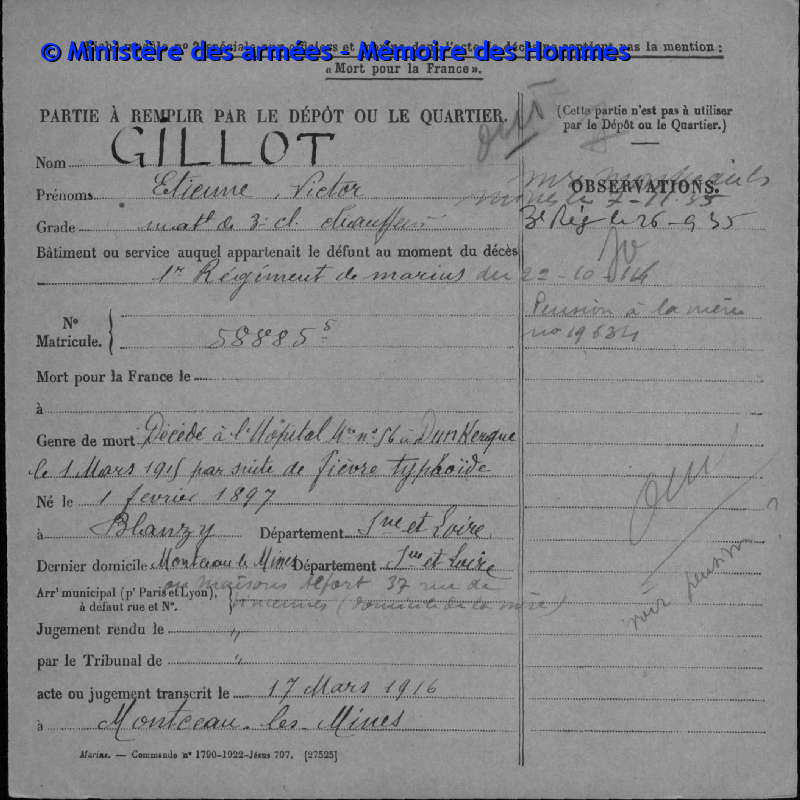 © Ministère des armées - Mémoire des Hommes
« Mort pour la France ».
PARTIE À REMPLIR PAR LE DÉPÔT OU LE QUARTIER.
(Cette partie n'est pas à utiliser
par le Dépôt ou le Quartier.)
Nom GILLOT
Prénoms Etienne Victor
OBSERVATIONS.
Grade mat de 3e cl. chauffeur
3e Rég le 26-9 35
Bâtiment ou service auquel appartenait le défunt au moment du décès
1er Régiment de marins du 22-10 14
Pension à la mère
no 19634
N°
Matricule. 58885 5
Mort pour la France le
à
Genre de mort Décédé à l'Hôpital n° 56 à Dunkerque
le 1 Mars 1915 par suite de fièvre typhoïde
Né le 1 fevrier 1897
à Blanzy Département Sne et Loire
Dernier domicile Montceau le Mines Département Sne et Loire
ou Maisons Alfort 37 rue de
Arrt municipal (pr Paris et Lyon),
à défaut rue et N°.
Vincennes (domicile de la mère)
Jugement rendu le "
par le Tribunal de "
acte ou jugement transcrit le 17 Mars 1916
à Montceau-les-Mines
voir pension ?
Marine. — Commande n° 1790-1922-Jésus 707. [27525]